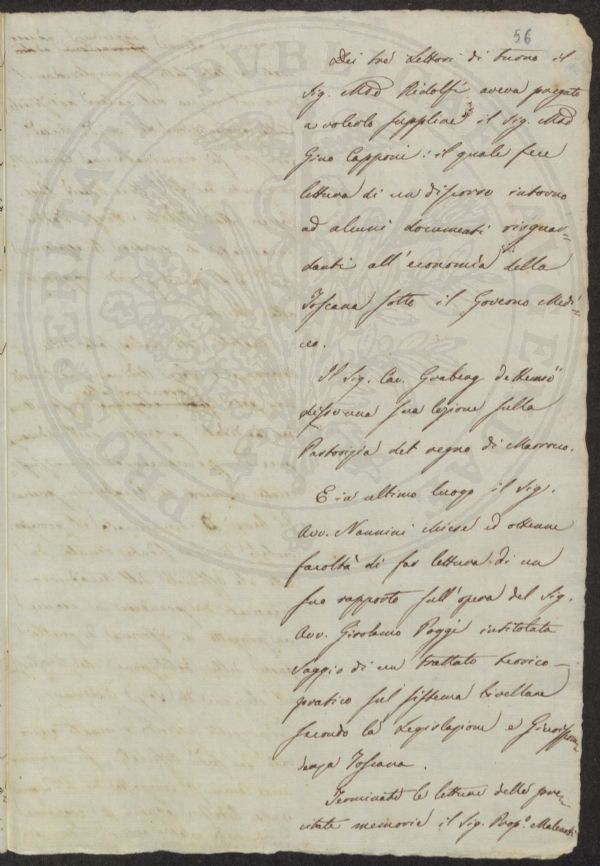 56
Dei tre Lettori di turno il
Sig. Mse Ridolfi aveva pregato
a volerlo supplire il Sig. Mse
Gino Capponi: il quale fece
lettura di un discorso intorno
ad alcuni documenti risguar-
danti all'economia della
Toscana sotto il Governo Medi-
ceo.
Il Sig. Cav. Graberg de Hemsö
lesse una sua lezione sulla
Pastorizia del regno di Marocco.
E in ultimo luogo il Sig.
Avv. Nannini chiese ed ottenne
facoltà di far lettura di un
suo rapporto sull'opera del Sig.
Avv. Girolamo Poggi intitolata
Saggio di un trattato teorico-
pratico sul sistema livellare
secondo la Legislazione e Giurispru-
denza Toscana.
Terminate le letture delle pre-
citate memorie il Sig. Prop.o
PROSPERITATI PVBLICAE AVGENDAE